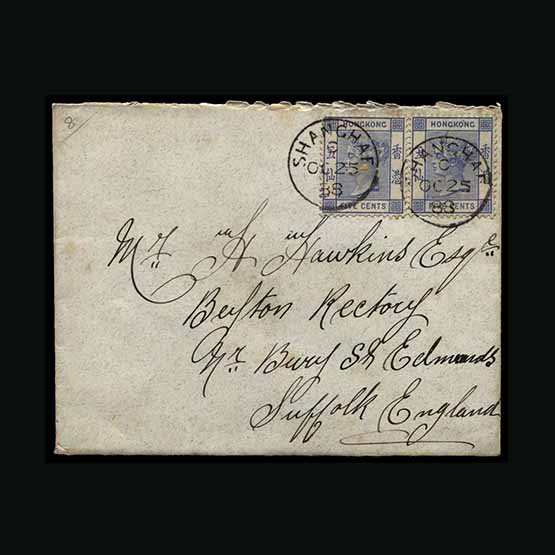 8
HONGKONG HONGKONG
SHANGHAE SHANGHAE
C C
OC 25 OC 25
88 88
香港 香港
FIVE CENTS FIVE CENTS
Mr H Hawkins Esqre
Beyton Rectory
Nr. Bury St Edmunds
Suffolk England